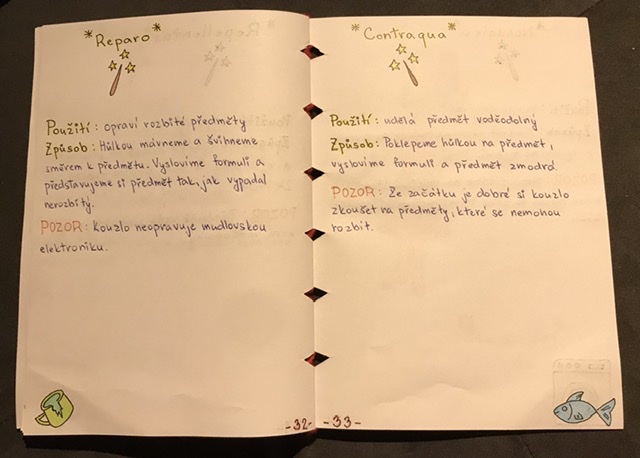 *Reparo*
Použití: opraví rozbité předměty
Způsob: Hůlkou mávneme a švihneme
směrem k předmětu. Vyslovíme formuli a
představujeme si předmět tak, jak vypadal
nerozbitý.
POZOR: Kouzlo neopravuje mudlovskou
elektroniku.
-32-
*Contraqua*
Použití: udělá předmět voděodolný
Způsob: Poklepeme hůlkou na předmět,
vyslovíme formuli a předmět zmodrá.
POZOR: Ze začátku je dobré si kouzlo
zkoušet na předměty, které se nemohou
rozbít.
-33-